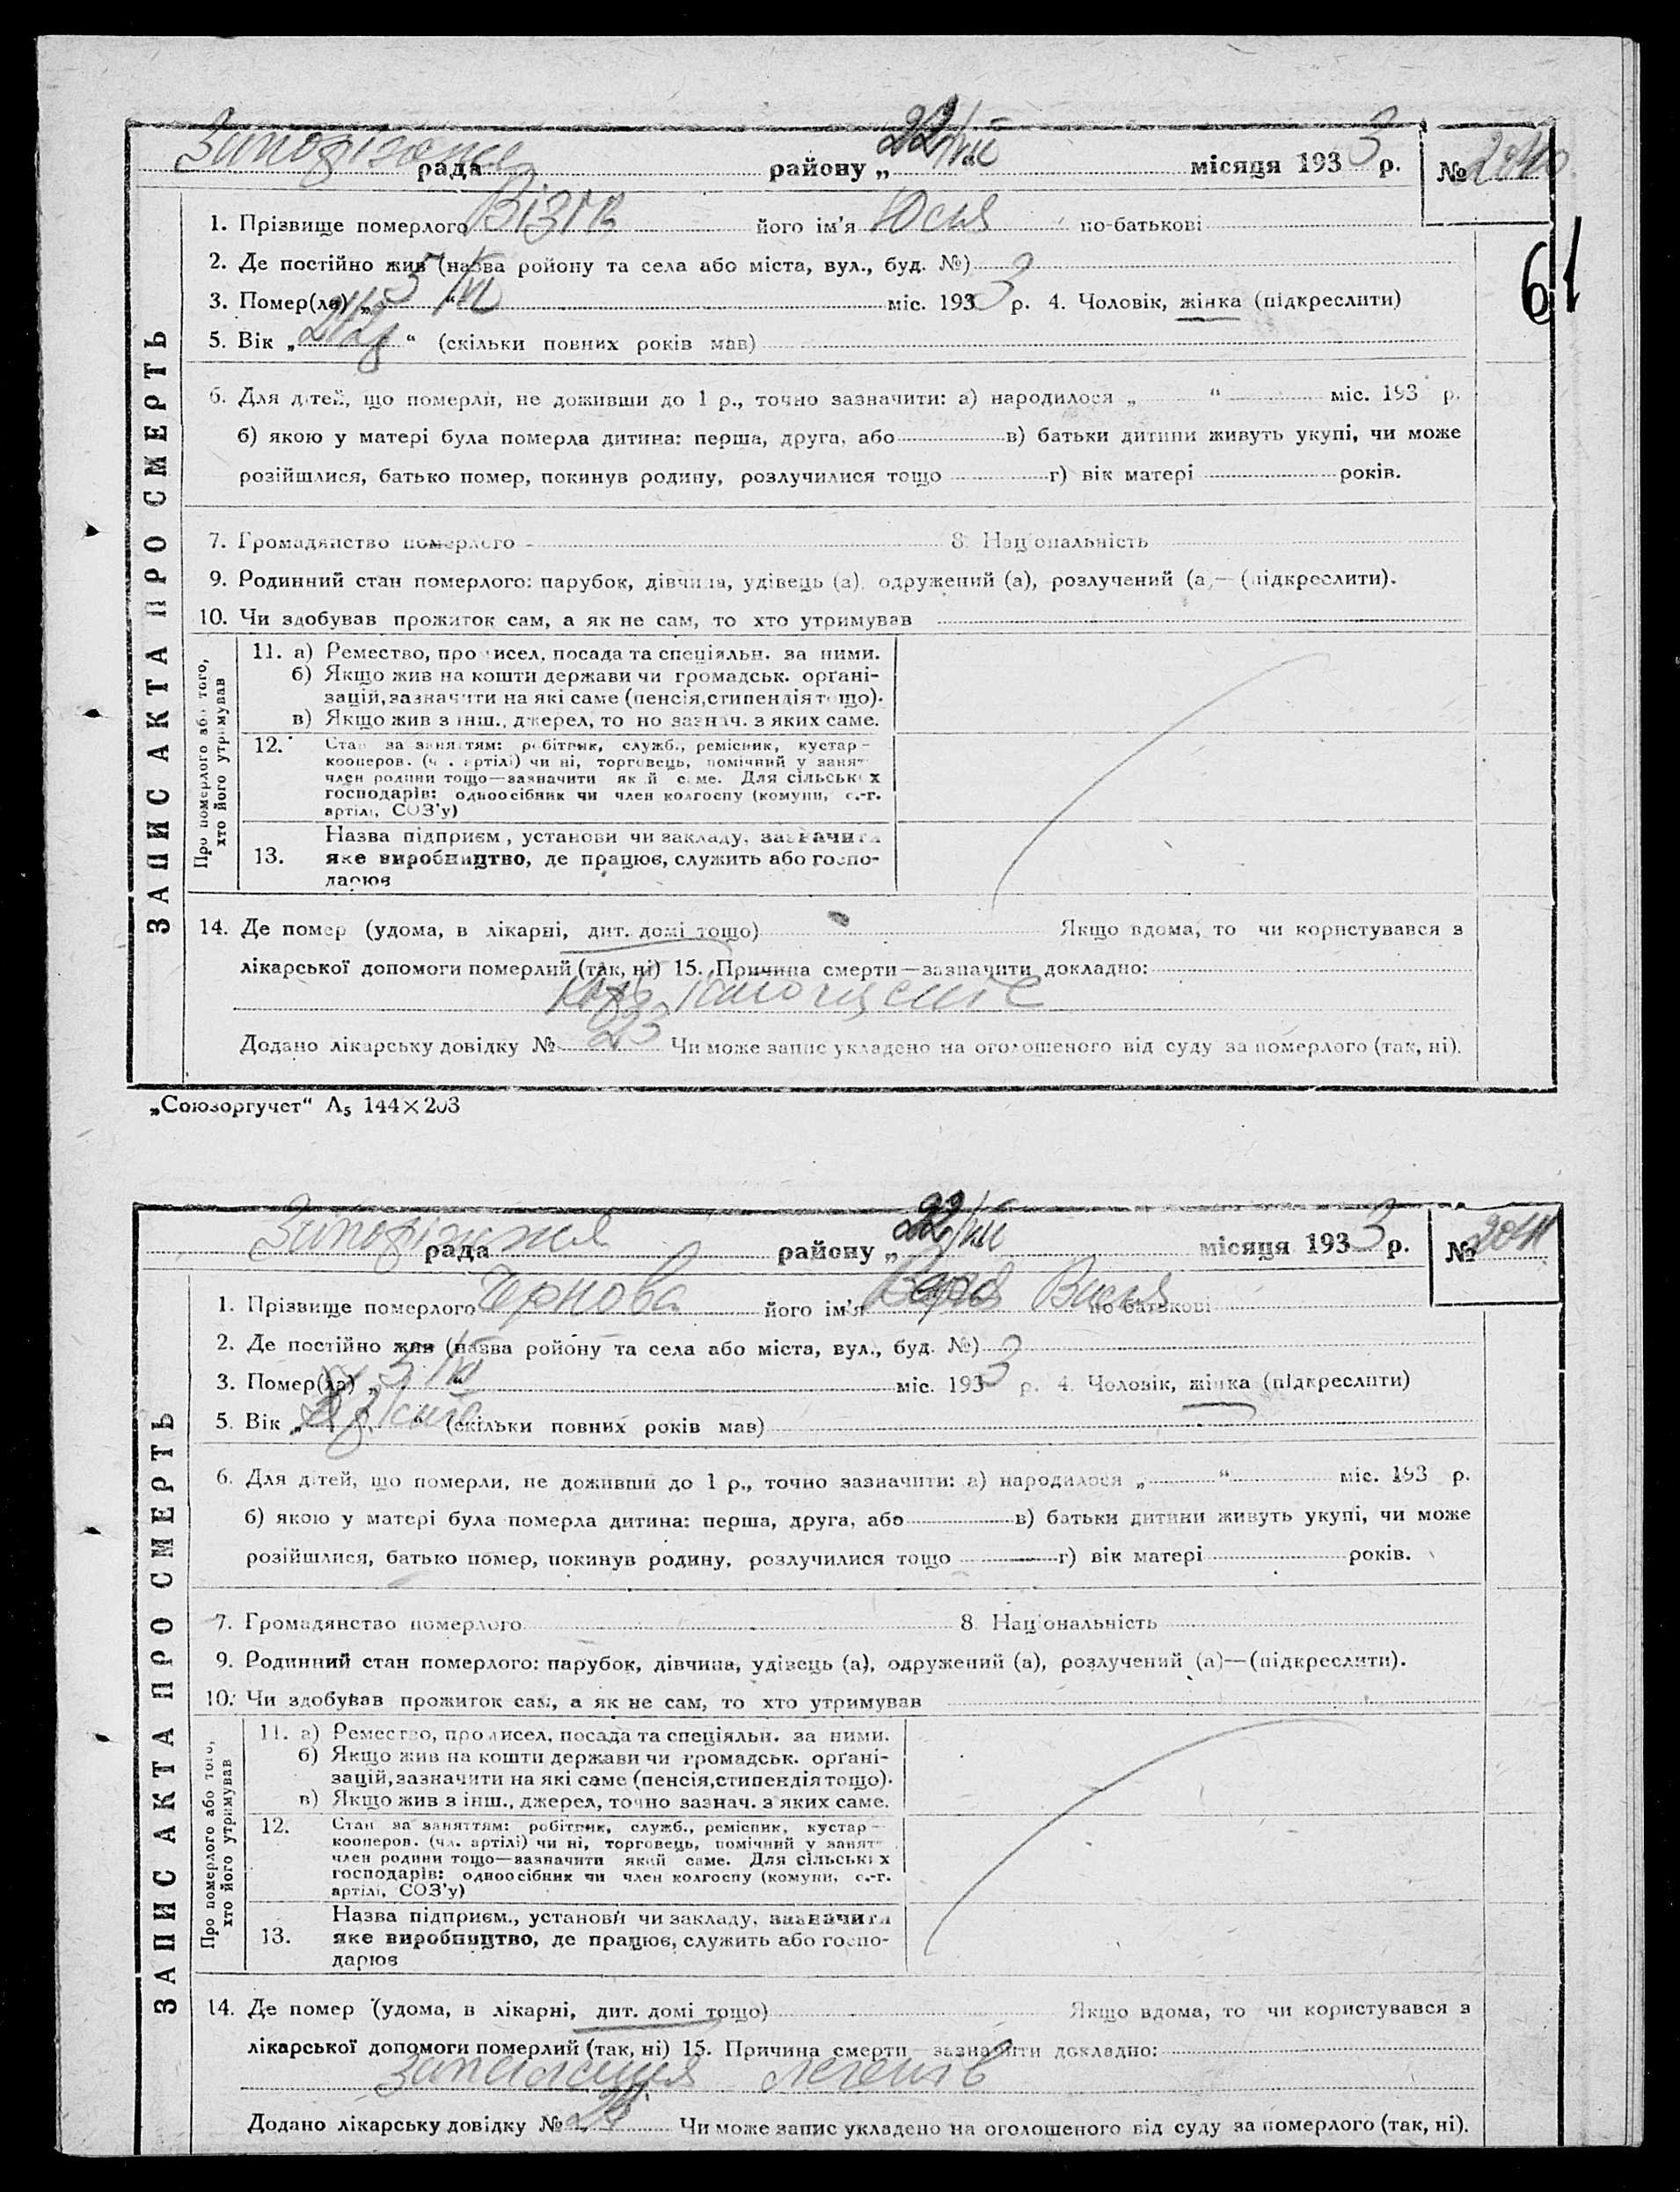 Запоріжжя рада району „22/VII“ місяця 1933 р. № 2040
61
1. Прізвище померлого його ім'я Юсня по-батькові
2. Де постійно жив (назва ройону та села або міста, вул., буд. №)
3. Помер(ла) „5/VI“ міс. 1933 р. 4. Чоловік, жінка (підкреслити)
5. Вік „ “ (скільки повних років мав)
6. Для дітей, що померли, не доживши до 1 р., точно зазначити: а) народилося „ “ міс. 193 р.
б) якою у матері була померла дитина: перша, друга, або в) батьки дитини живуть укупі, чи може
розійшлися, батько помер, покинув родину, розлучилися тощо г) вік матері років.
7. Громадянство померлого 8. Національність
9. Родинний стан померлого: парубок, дівчина, удівець (а), одружений (а), розлучений (а)— (підкреслити).
10. Чи здобував прожиток сам, а як не сам, то хто утримував
ЗАПИС АКТА ПРО СМЕРТЬ
Про померлого або того,
хто його утримував
11. а) Ремество, промисел, посада та спеціяльн. за ними.
б) Якщо жив на кошти держави чи громадськ. орґані-
зацій, зазначити на які саме (пенсія, стипендія тощо).
в) Якщо жив з інш., джерел, точно зазнач. з яких саме.
12. Стан за заняттям: робітник, служб., ремісник, кустар—
кооперов. (чл. артілі) чи ні, торговець, помічний у занят
член родини тощо—зазначити який саме. Для сільських
господарів: одноосібник чи член колгоспу (комуни, с.-г.
артілі, СОЗ'у)
Назва підприєм., установи чи закладу, зазначити
13. яке виробництво, де працює, служить або госпо-
дарює
14. Де помер (удома, в лікарні, дит. домі тощо) Якщо вдома, то чи користувався з
лікарської допомоги померлий (так, ні) 15. Причина смерти—зазначити докладно:
Додано лікарську довідку № 23 Чи може запис укладено на оголошеного від суду за померлого (так, ні).
„Союзоргучет“ А5 144×203
Запоріжжя рада району „22/VII“ місяця 1933 р. № 2041
1. Прізвище померлого Чернова його ім'я Варя по-батькові
2. Де постійно жив (назва ройону та села або міста, вул., буд. №)
3. Помер(ла) „5/VI“ міс. 1933 р. 4. Чоловік, жінка (підкреслити)
5. Вік „ “ (скільки повних років мав)
6. Для дітей, що померли, не доживши до 1 р., точно зазначити: а) народилося „ “ міс. 193 р.
б) якою у матері була померла дитина: перша, друга, або в) батьки дитини живуть укупі, чи може
розійшлися, батько помер, покинув родину, розлучилися тощо г) вік матері років.
7. Громадянство померлого 8. Національність
9. Родинний стан померлого: парубок, дівчина, удівець (а), одружений (а), розлучений (а)—(підкреслити).
10. Чи здобував прожиток сам, а як не сам, то хто утримував
ЗАПИС АКТА ПРО СМЕРТЬ
Про померлого або того,
хто його утримував
11. а) Ремество, промисел, посада та спеціяльн. за ними.
б) Якщо жив на кошти держави чи громадськ. орґані-
зацій, зазначити на які саме (пенсія, стипендія тощо).
в) Якщо жив з інш., джерел, точно зазнач. з яких саме.
12. Стан за заняттям: робітник, служб., ремісник, кустар—
кооперов. (чл. артілі) чи ні, торговець, помічний у занят
член родини тощо—зазначити який саме. Для сільських
господарів: одноосібник чи член колгоспу (комуни, с.-г.
артілі, СОЗ'у)
Назва підприєм., установи чи закладу, зазначити
13. яке виробництво, де працює, служить або госпо-
дарює
14. Де помер (удома, в лікарні, дит. домі тощо) Якщо вдома, то чи користувався з
лікарської допомоги померлий (так, ні) 15. Причина смерти—зазначити докладно:
запалення легенів
Додано лікарську довідку № Чи може запис укладено на оголошеного від суду за померлого (так, ні).